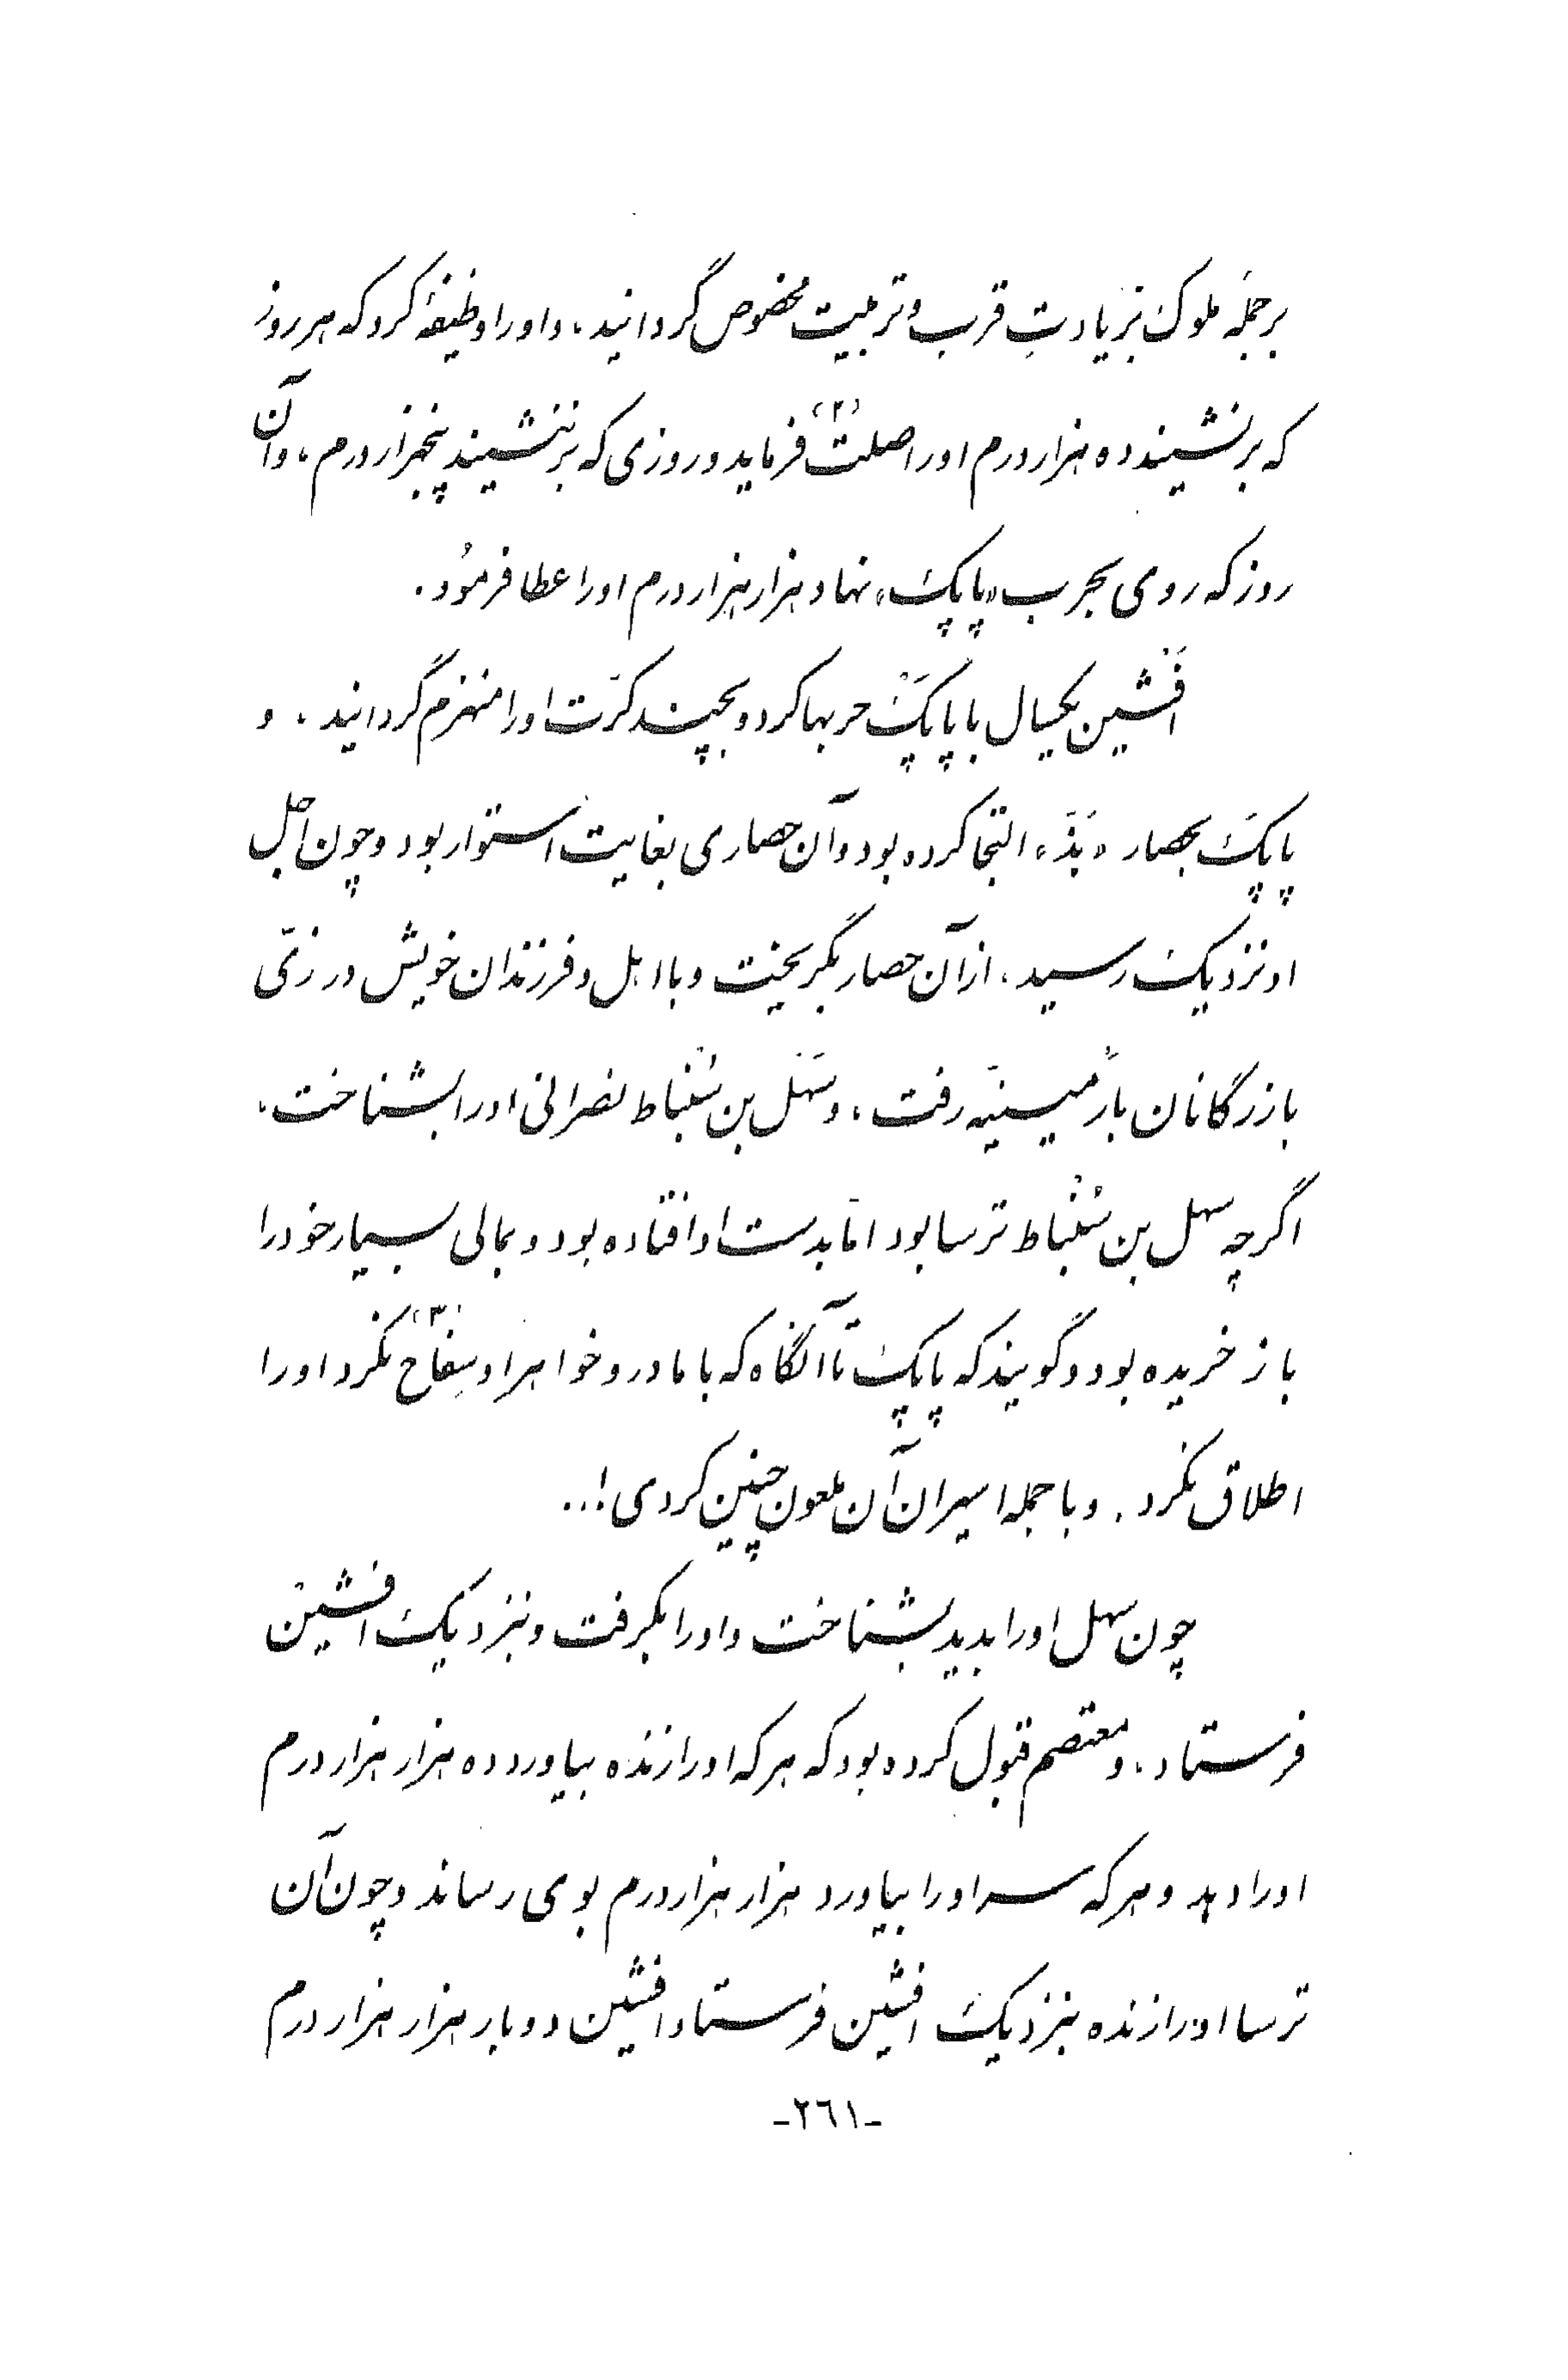 برجمله ملوک بزیادتِ قرب و تربیت مخصوص گردانید، و اورا وظیفهٔ کرد که هر روز
که برنشیند ده هزار درم اورا صلت (۲) فرماید و روزی که برننشیند پنجهزار درم، و آن
روز که روی بحرب «پاپک» نهاد هزار هزار درم اورا عطا فرمُود.
اَفْشین یکسال با پاپَکْ حربها کرد و بچند کرّت اورا منهزم گردانید. و
پاپَک بحصار «بَذّ» التجا کرده بود و آن حصاری بغایت استوار بود و چون اجل
او نزدیک رسید، از آن حصار بگریخت و با اهل و فرزندان خویش در زیّ
بازرگانان باَرمینیّه رفت، و سَهَل بن سُنْباط نصرانی اورا بشناخت،
اگرچه سهل بن سُنْباط ترسا بود امّا بدست او افتاده بود و بمالی بسیار خود را
باز خریده بود و گویند که پاپک تا آنگاه که با مادر و خواهر او سِفاح (۳) نکرد اورا
اطلاق نکرد. و با جمله اسیران آن ملعون چنین کردی!..
چون سهل اورا بدید بشناخت و اورا بگرفت و بنزدیک افشینْ
فرستاد، و معتصم قبول کرده بود که هر که اورا زنده بیاورد ده هزار هزار درم
اورا دهد و هر که سر اورا بیاورد هزار هزار درم بوی رساند و چون آن
ترسا اورا زنده بنزدیک افشین فرستاد افشین دو بار هزار هزار درم
-۲٦۱-